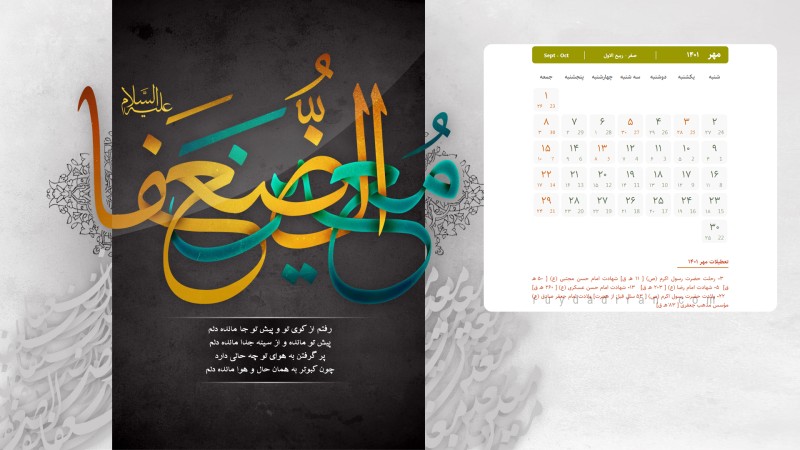 معین الضعفا
علیه السلام
رفتم از کوی تو و پیش تو جا مانده دلم
پیش تو مانده و از سینه جدا مانده دلم
پر گرفتن به هوای تو چه حالی دارد
چون کبوتر به همان حال و هوا مانده دلم
مهر ۱۴۰۱ صفر - ربیع الاول Sept - Oct
شنبه یکشنبه دوشنبه سه شنبه چهارشنبه پنجشنبه جمعه
۱
۲ ۳ ۴ ۵ ۶ ۷ ۸
۹ ۱۰ ۱۱ ۱۲ ۱۳ ۱۴ ۱۵
۱۶ ۱۷ ۱۸ ۱۹ ۲۰ ۲۱ ۲۲
۲۳ ۲۴ ۲۵ ۲۶ ۲۷ ۲۸ ۲۹
۳۰
تعطیلات مهر ۱۴۰۱
۰۳- رحلت حضرت رسول اکرم (ص) [ ۱۱ ه ق] شهادت امام حسن مجتبی (ع) [ ۵۰ ه
ق] ۰۵- شهادت امام رضا (ع) [ ۲۰۳ ه ق] ۱۳- شهادت امام حسن عسکری (ع) [ ۲۶۰ ه ق]
۲۲- ولادت حضرت رسول اکرم (ص) [ ۵۳ سال قبل از هجرت] ولادت امام جعفر صادق (ع)
مؤسس مذهب جعفری [ ۸۳ ه ق]